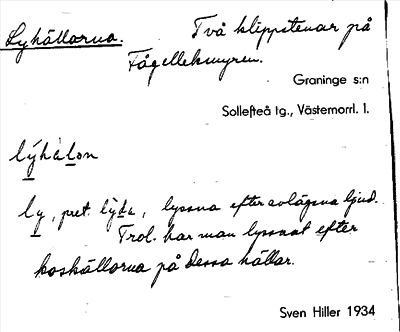 Lyhällarna. Två klippstenar på
Fågellekmyren.
Graninge s:n
Sollefteå tg., Västernorrl. l.
lýhàlon
ly, pret. lydа, lyssna efter avlägsna ljud.
Trol. har man lyssnat efter
koskällorna på dessa hällar.
Sven Hiller 1934